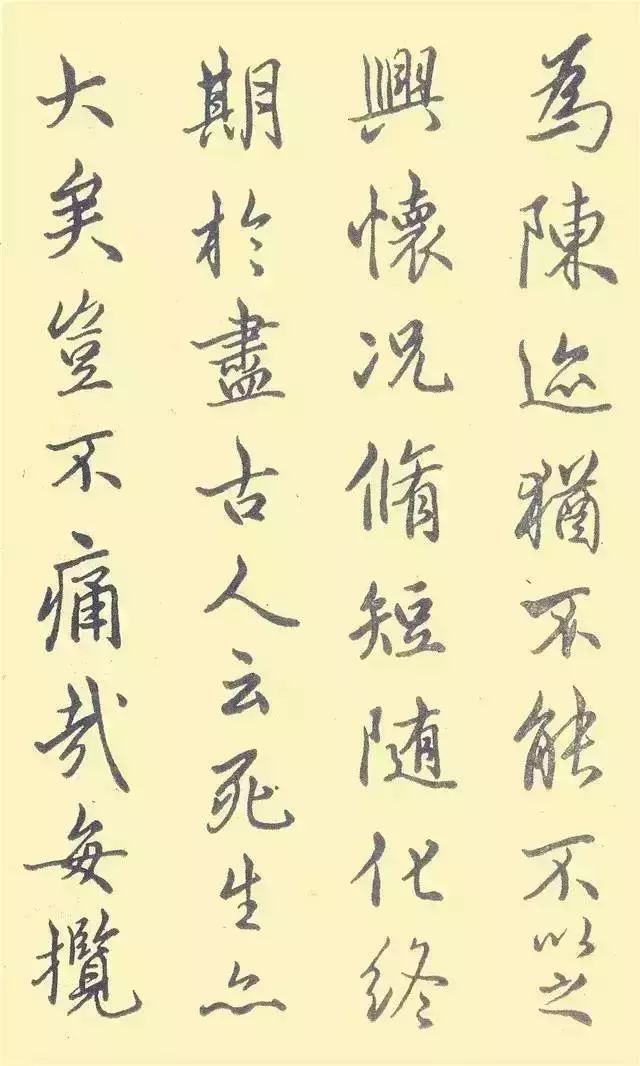 為陳迹猶不能不以之
興懷况脩短随化終
期於盡古人云死生亦
大矣豈不痛哉每攬